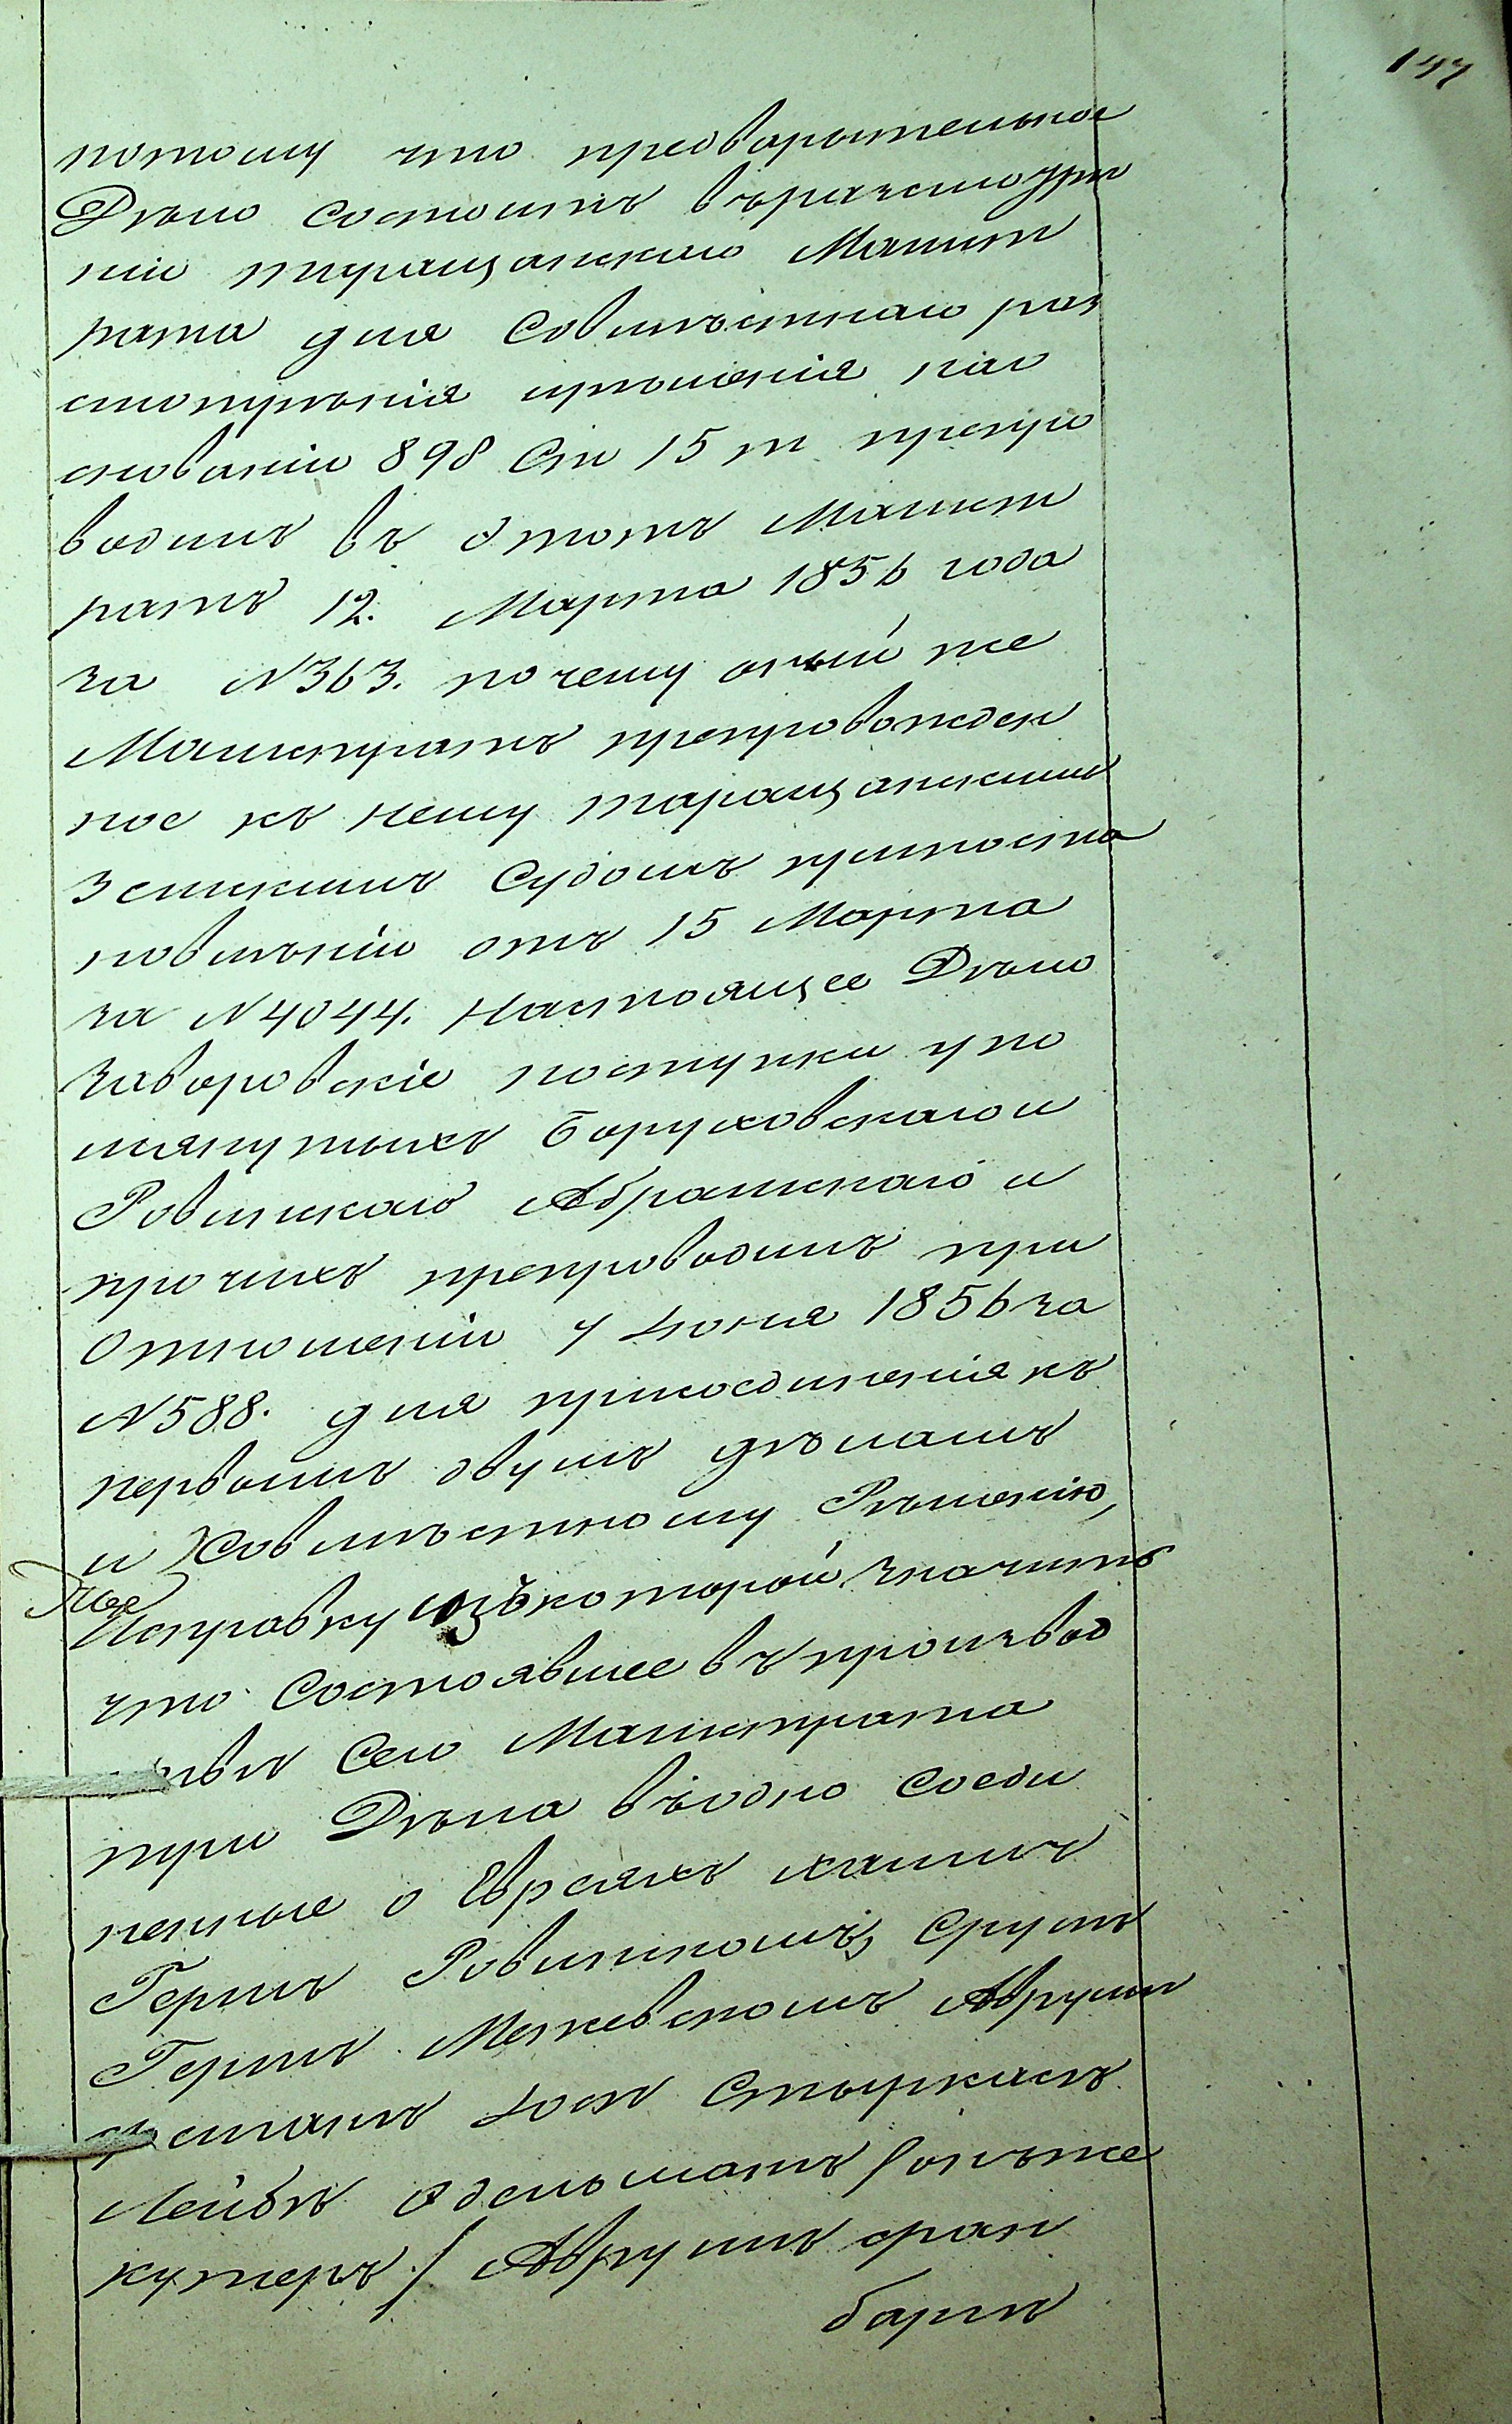 147
потому что предварительное
Дѣло состоитъ въ разсмотрѣ
ніи таращанскаго Магист
рата для Совмѣстнаго раз
смотрѣнія приме­ненія на о
снованіи 898 Ст 15 т препро
водилъ въ этотъ Магист
ратъ 12. Марта 1856 года
за N363. почему оный же
Магистратъ препровожден
ное къ нему таращанскимъ
Земскимъ Судомъ при поста
новленіи отъ 15 Марта
за N4044. Настоящее Дѣло
за воровскіе поступки упо
мянутыхъ Боруховскаго и
Ровинскаго Абрамскаго и
прочихъ препроводилъ при
Отношеніи 7 Іюня 1856 за
N588. для присоединенія къ
первымъ двумъ дѣламъ
и Совмѣстному Рѣшенію,
Справку изъ которой значитъ
что Состоявшее въ производ
ствѣ Сего Магистрата
три Дѣла въ одно Соеди
ненные о Евреяхъ Хаимъ
Гершъ Ровинскомъ, Срулъ
Гершъ Межевскомъ Аврумъ
Іосъ Стыркасъ
Лейбъ Эдельманъ / онъ же
кучеръ / Аврумъ фаен
баргъ